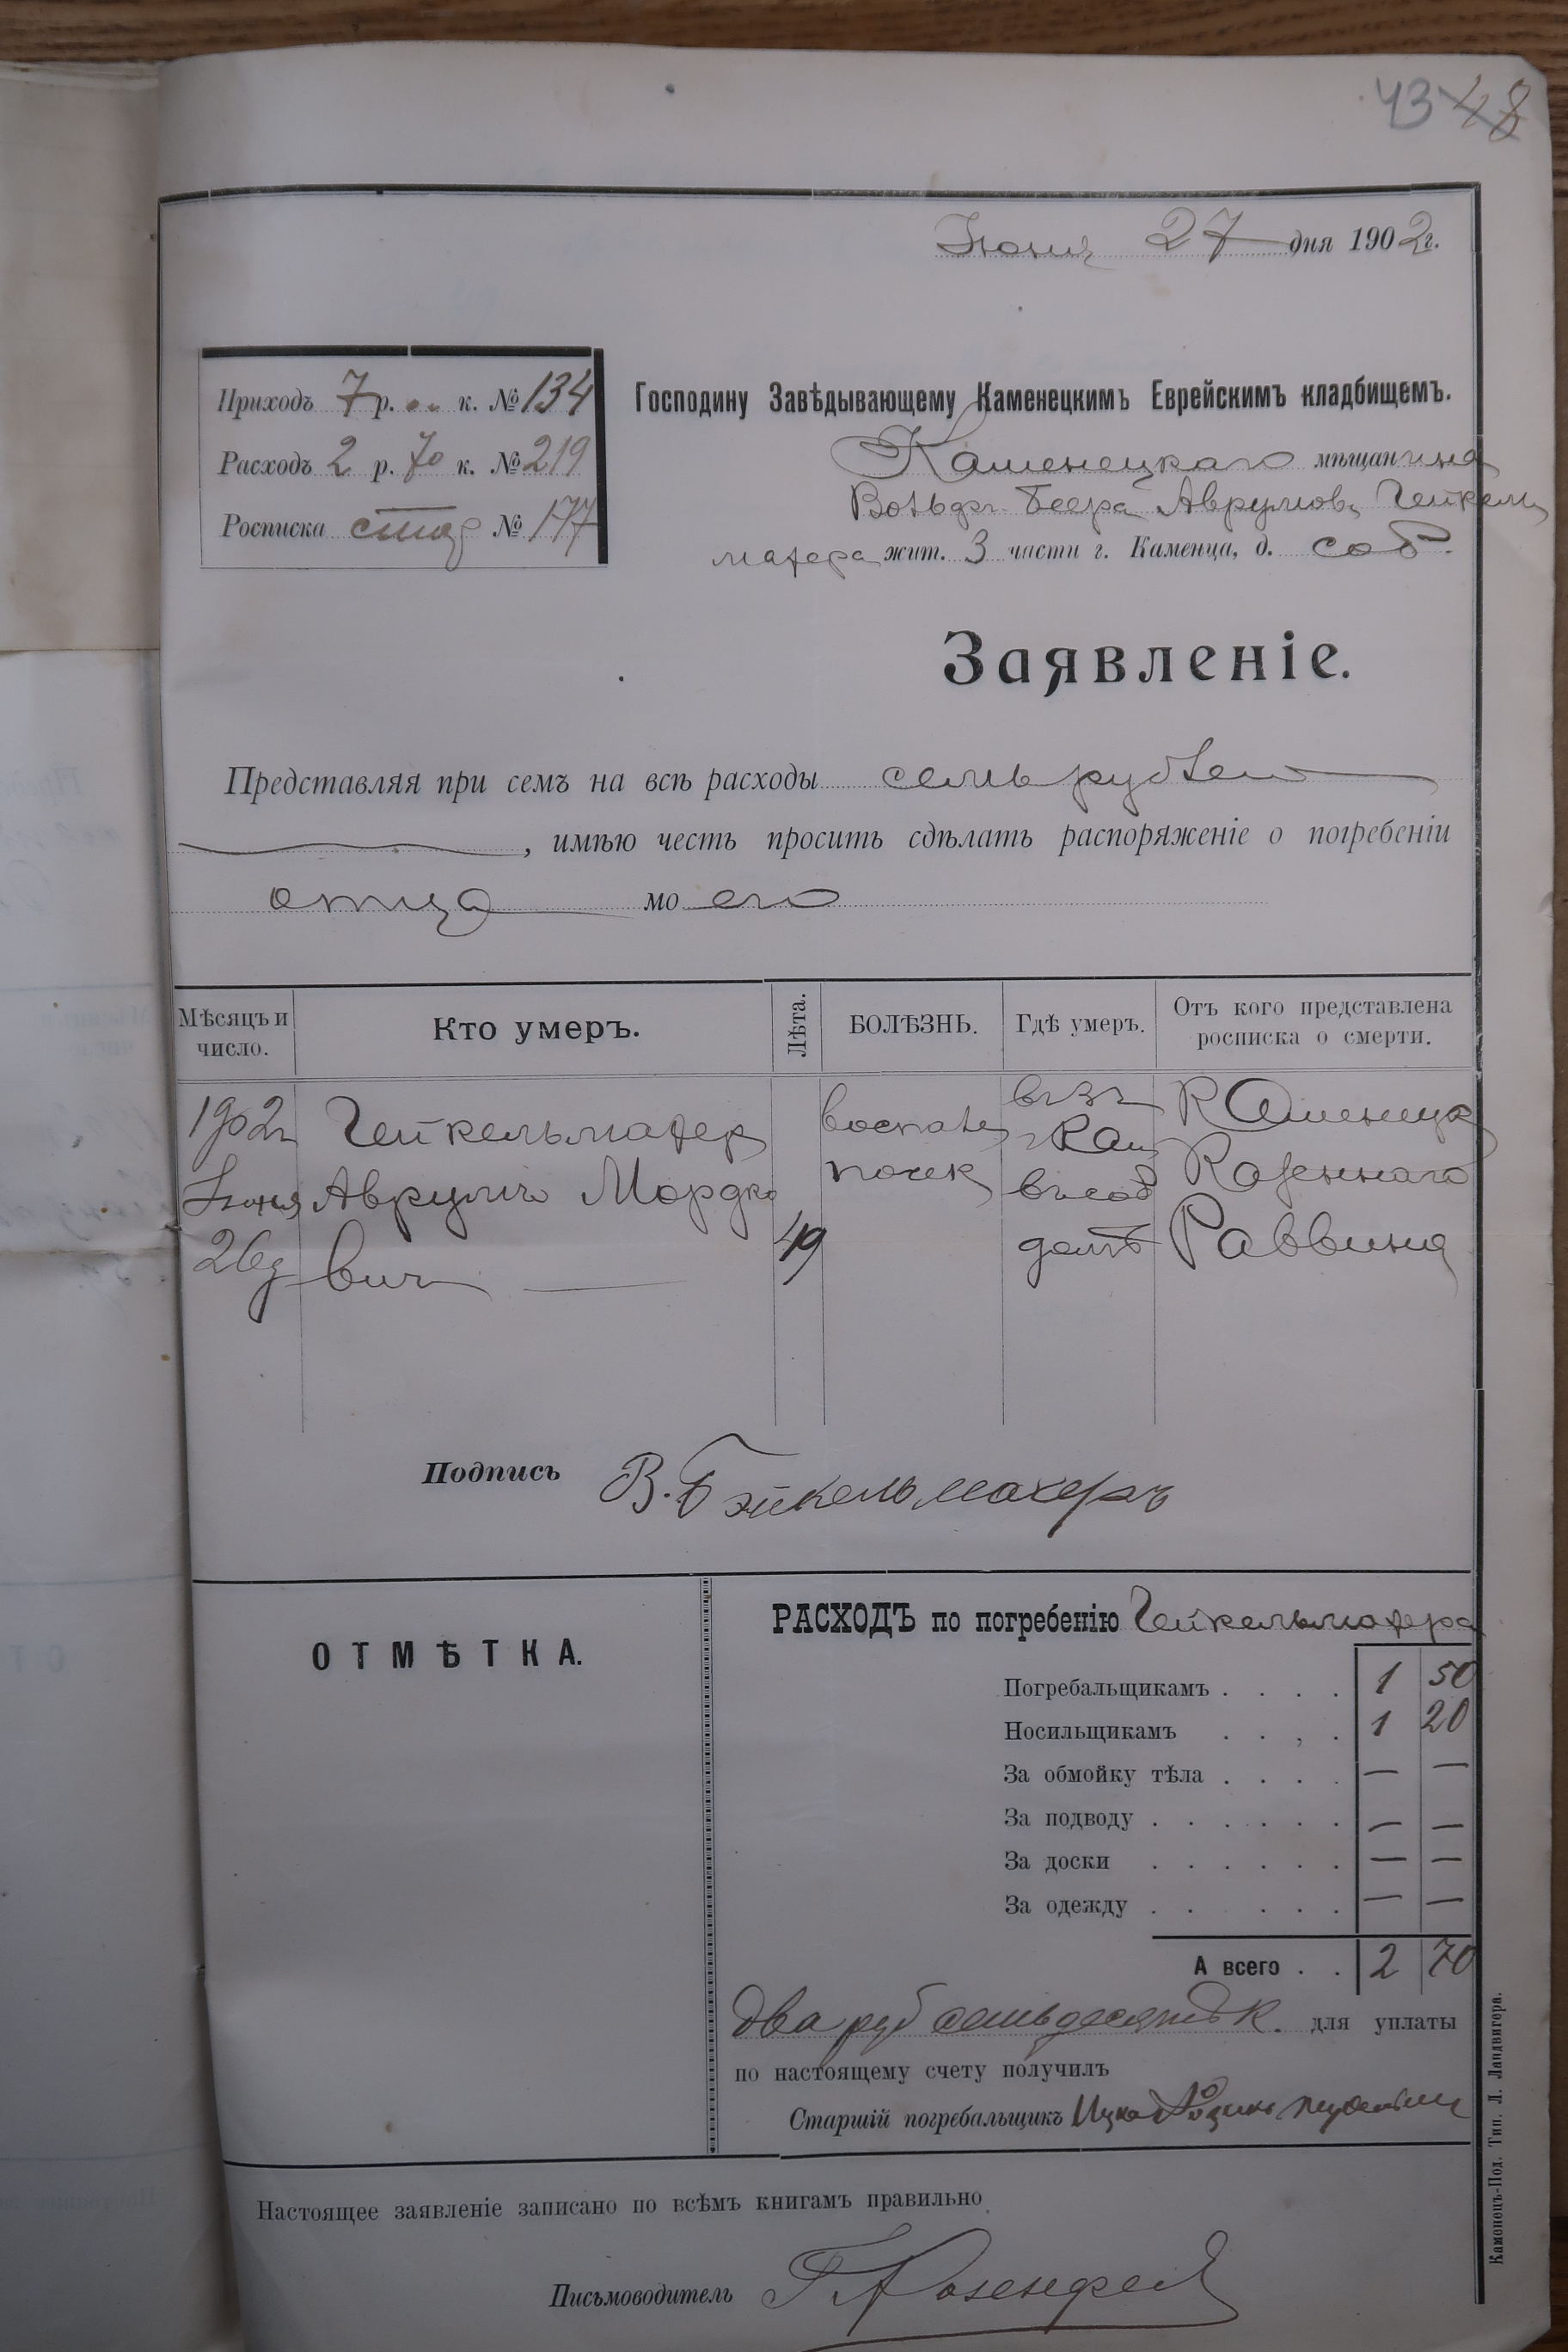 43 48
Іюня 27 дня 1902 г.
Приходъ 7 р. .. к. № 134
Расходъ 2 р. 70 к. № 219
Росписка стар № 177
Господину Завѣдывающему Каменецкимъ Еврейскимъ кладбищемъ.
Каменецкаго мѣщанина
Вольфъ Беера Аврумовъ Гейкель
махера жит. 3 части г. Каменца, д. соб.
Заявленіе.
Представляя при семъ на всѣ расходы семь рублей
, имѣю честь просить сдѣлать распоряженіе о погребеніи
отца моего
Мѣсяцъ и число.
Кто умеръ.
Лѣта.
БОЛѢЗНЬ.
Гдѣ умеръ.
Отъ кого представлена росписка о смерти.
1902 г
Іюня
26 д
Гейкельмахер
Аврумъ Мордко
вич
49
воспале
почек
въ 3 ч
г Кам
въ соб
домѣ
Каменецк
Казеннаго
Раввина
Подпись В. Гэйкельмахеръ
ОТМѢТКА.
РАСХОДЪ по погребенію Гейкельмахера
Погребальщикамъ . . . . 1 50
Носильщикамъ . . , . 1 20
За обмойку тѣла . . . . — —
За подводу . . . . . . — —
За доски . . . . . . — —
За одежду . . . . . . — —
А всего . . 2 70
два руб семьдесятъ к. для уплаты
по настоящему счету получилъ
Старшій погребальщикъ Ицко
Настоящее заявленіе записано по всѣмъ книгамъ правильно
Письмоводитель Г. Розенфельд
Каменецъ-Под. Тип. Л. Ландвигера.